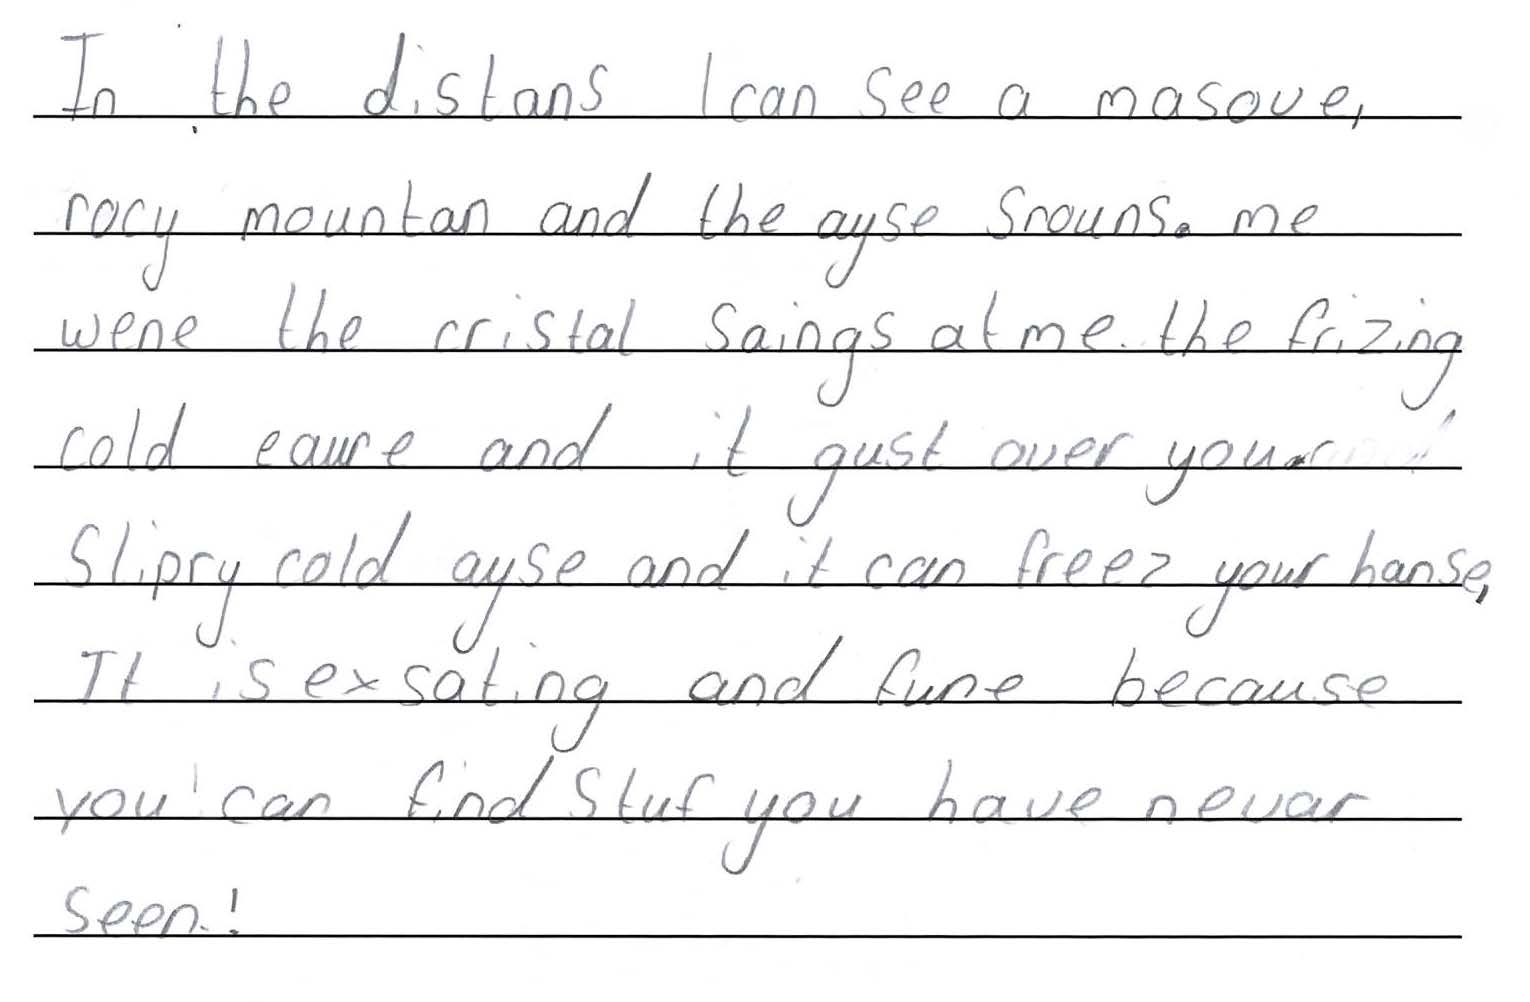 In the distans I can see a masove,
rocy mountan and the ayse srouns. me
wene the cristal saings at me. the frizing
cold eaure and it gust over your
Slipry cold ayse and it can freez your hanse,
It is exsating and fune because
you can find stuf you have nevar
seen!